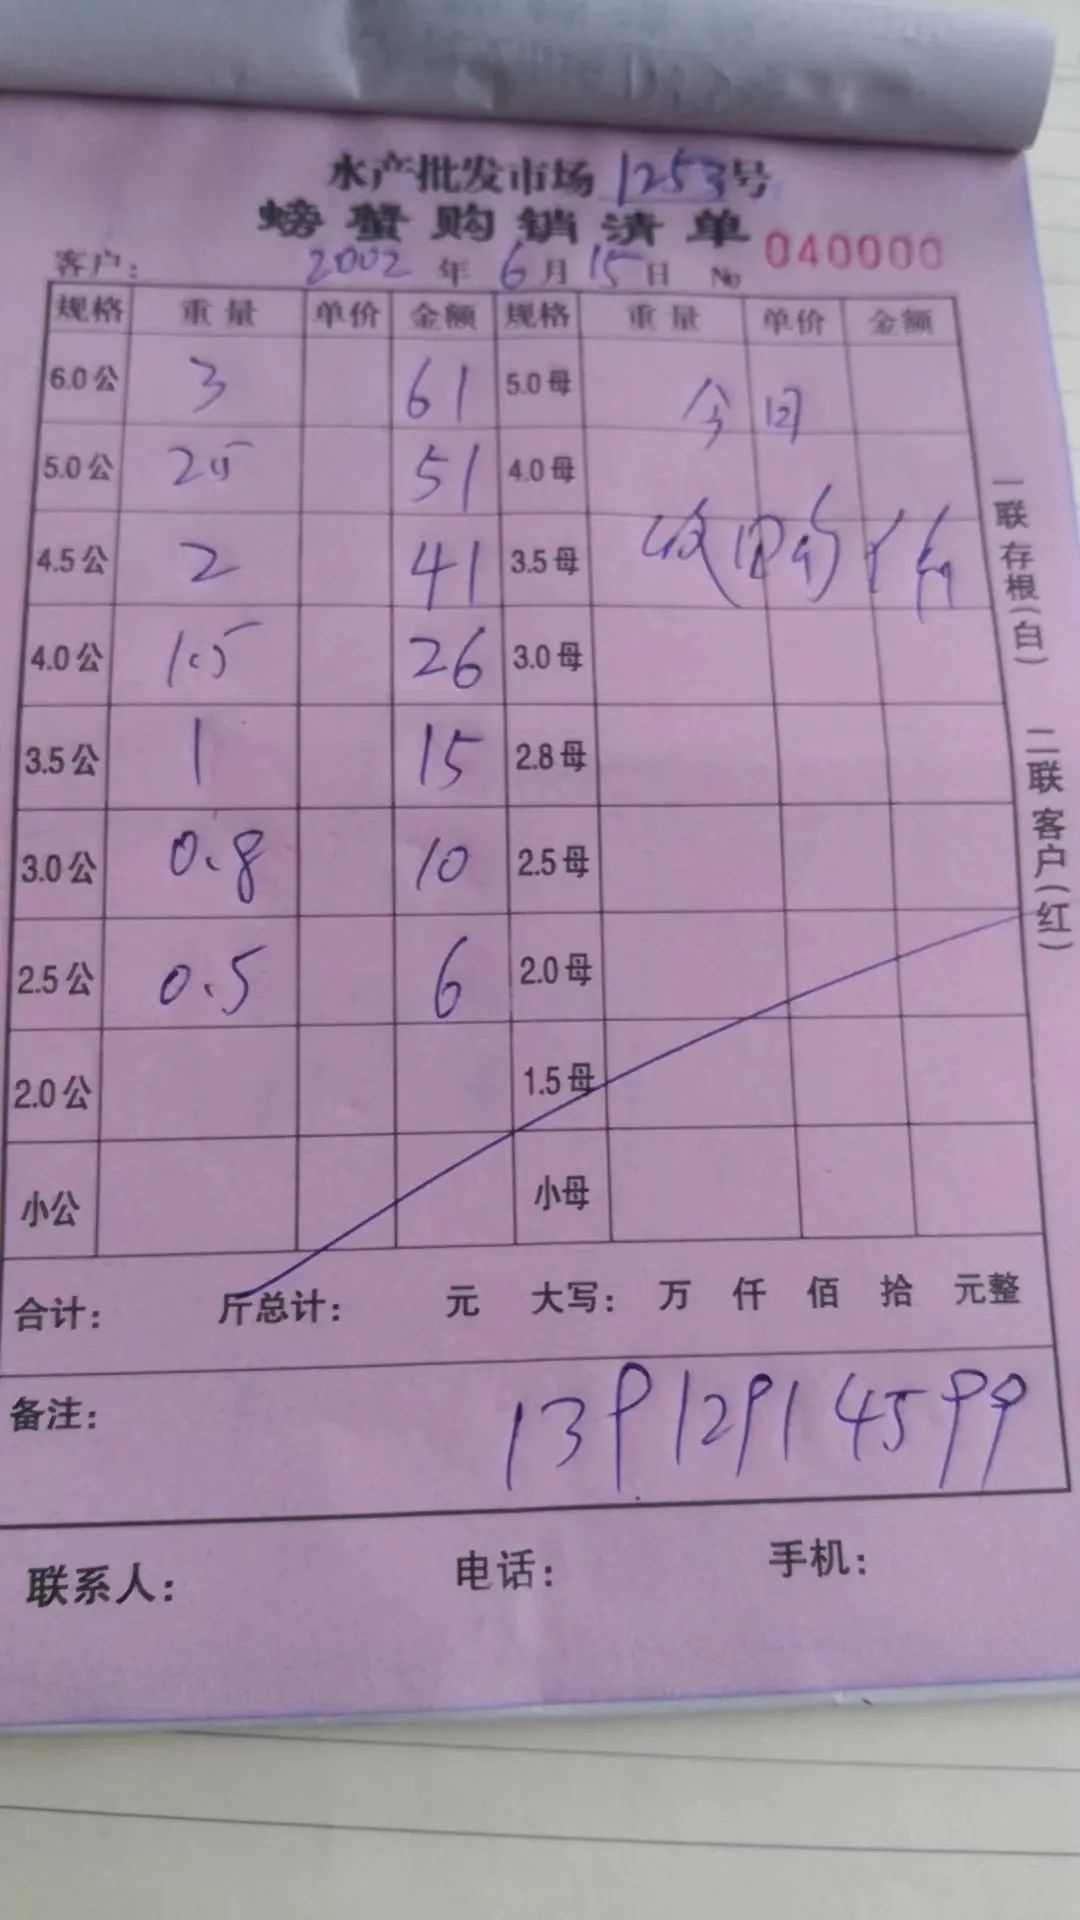 水产批发市场 1253号
螃蟹购销清单
客户： 2002年 6月 15日 No 040000
规格 重量 单价 金额 规格 重量 单价 金额
6.0公 3 61 5.0母 今日
5.0公 25 51 4.0母
4.5公 2 41 3.5母 收
4.0公 1.5 26 3.0母
3.5公 1 15 2.8母
3.0公 0.8 10 2.5母
2.5公 0.5 6 2.0母
2.0公 1.5母
小公 小母
合计： 斤总计： 元 大写： 万 仟 佰 拾 元整
备注： 13912914599
联系人： 电话： 手机：
一联存根（白）
二联客户（红）